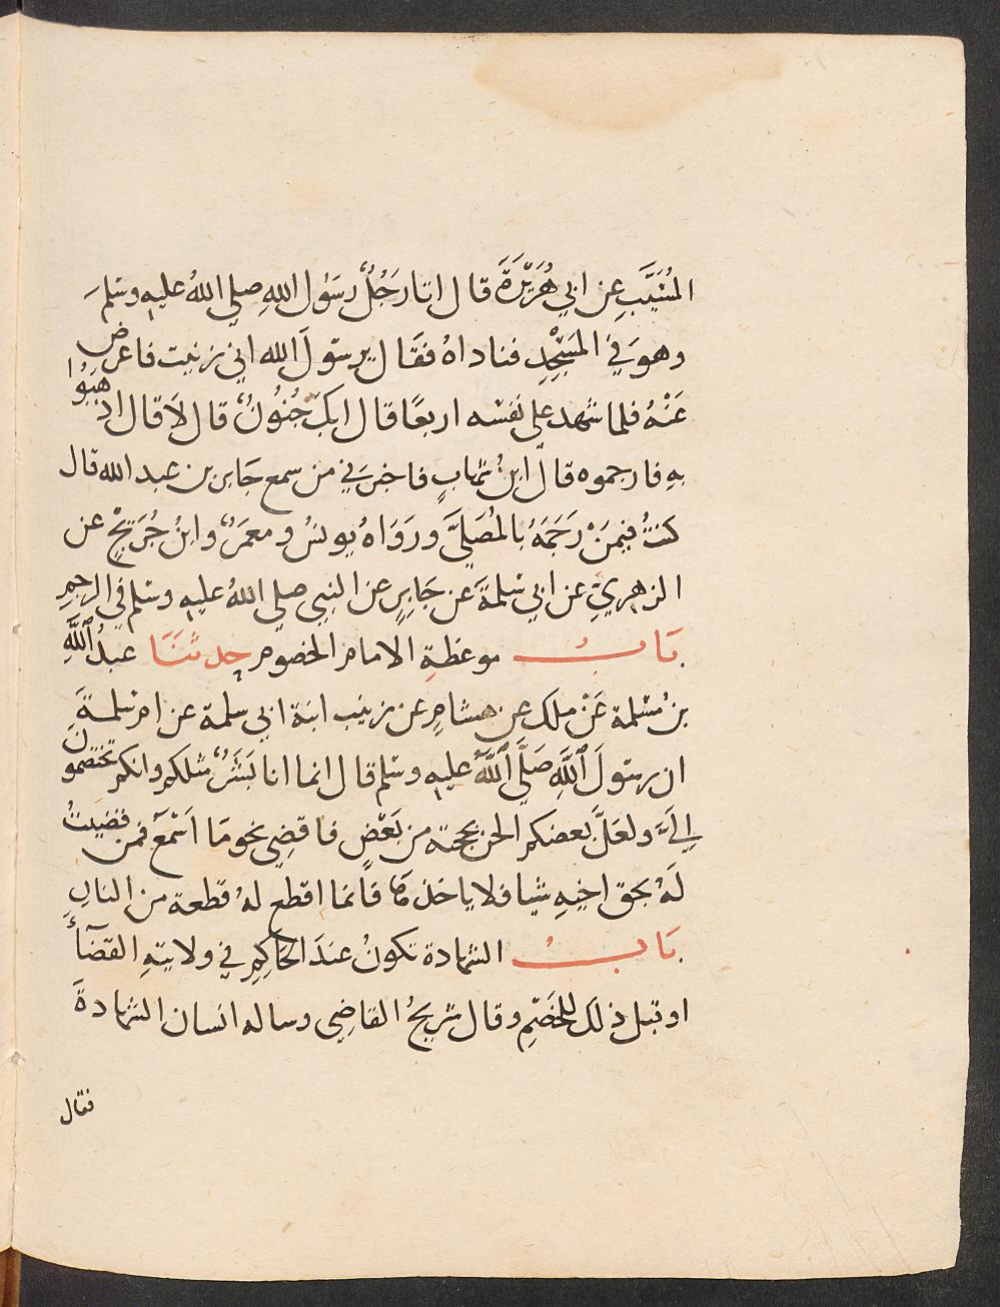 المُسَيَّبِ عن ابي هُرَيْرَةَ قال اتا رَجُلٌ رسَوُل اللهِ صلي اللهُ عليهِ وسَلمَ
وهوَ في المَسْجِدِ فناداهُ فقَال يرسَولَ الله اني زنيت فاعرض
عَنْهُ فلما شهد علي نفسْه اربعًا قال ابكَ جُنُونٌ قال لاَ قال اذهبُوا
بهِ فارجموه قالَ ابنُ شهابٍ فاخبرَني من سمع جَابر بن عبد الله قال
كنتُ فيمَنْ رَجَمَهُ بالمُصَليَّ ورَوَاهُ يونسُ ومعمَرٌ وابنُ جُرَيْجٍ عن
الزهريِّ عن ابي سَلمةَ عن جَابِرٍ عن النبي صلي اللهُ عليهِ وسَلم في الرجمِ
بَابُ موعظةِ الامام الخصوم حدثَنَا عبدُ اللَّهِ
بنُ مسْلمة عَنْ ملك عن هشامٍ عن زينب ابنة ابي سلمة عن ام سَلمةَ
ان رسَولَ اللَّهِ صَلَّي اللَّهُ عليهِ وسَلم قال انما انا بَشَرٌ مثلكم وانكم تختصمون
إليَّ ولعَلَّ بعضكم الحن بحجته من بَعْضٍ فاقضِي نحو مَا اَسْمَعَ فمن قضيتُ
لَهُ بحق اخيهِ شيا فلا ياخذهَا فَانما اقطع لهُ قطعة من النارِ
بَابُ الشهادة تكونُ عندَ الحَاكِمِ في ولايتهِ القضَآءَ
او قبل ذلك للخَصْمِ وقال شريحُ القاضِي وساله انسان الشهادةَ
فقال